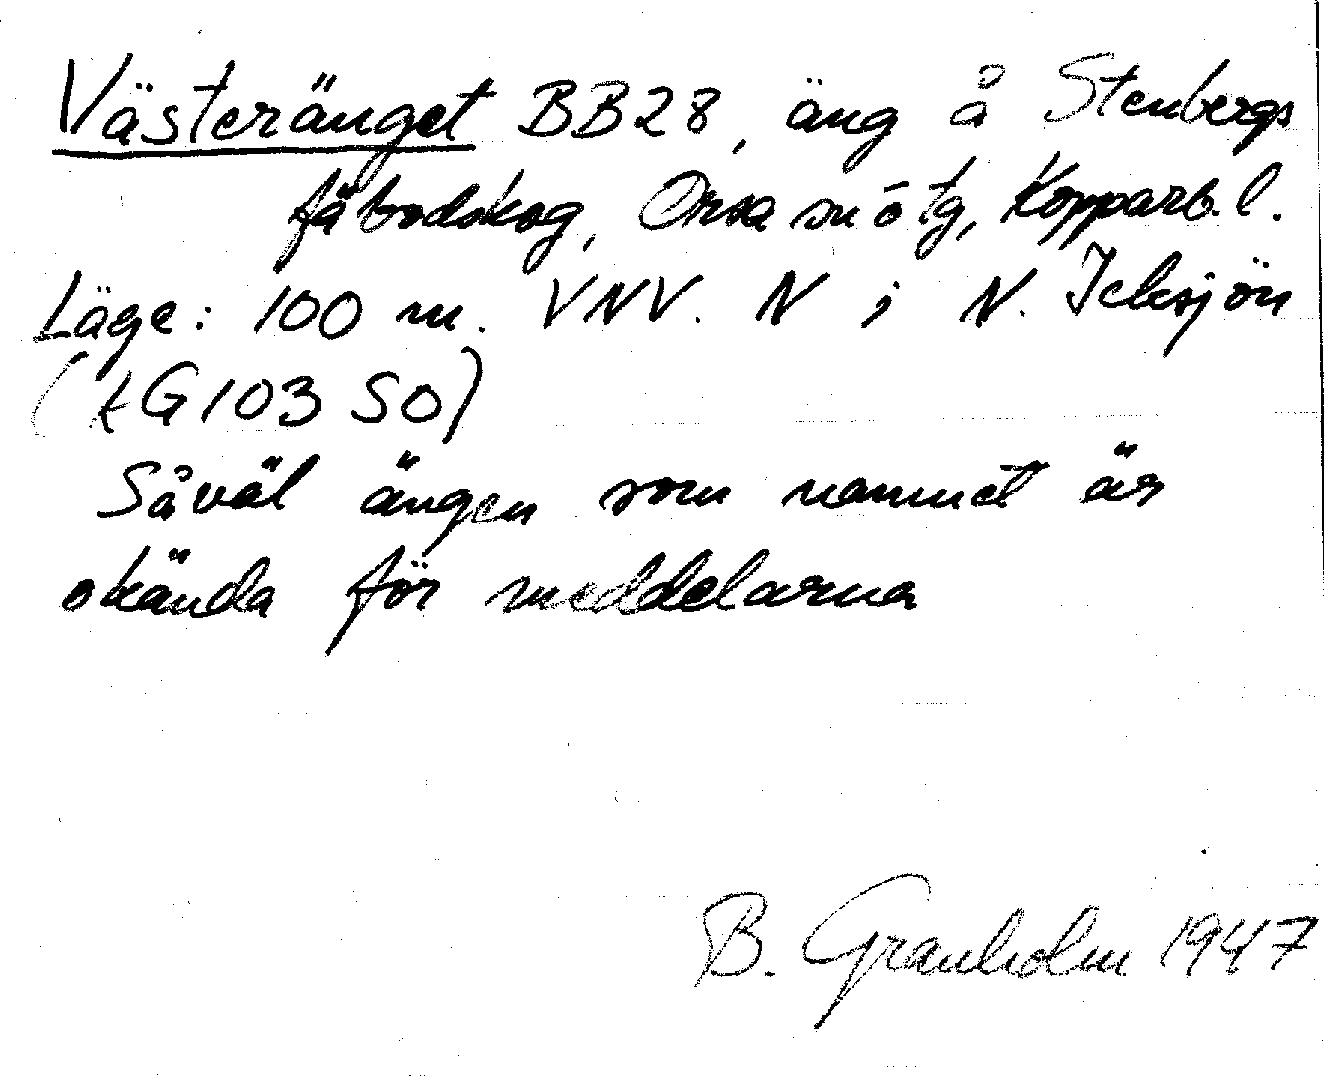 Västeränget BB28, äng å Stenbergs
fäbodskog, Orsa sn ö tg, Kopparb. l.
Läge: 100 m. VNV. N i N. Icksjön
(tG103 SO)
Såväl ängen som namnet är
okända för meddelarna
B. Granholm 1947